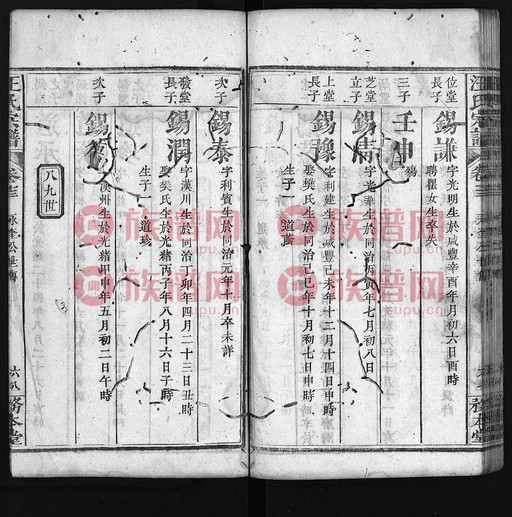 汪氏宗譜
卷三
務本堂
位堂
長子
錫謙
字光明生於咸豐辛酉年月初六日酉時
聘瞿女生卒失
三子
壬申
殤
芝堂
立子
錫
字光華生於同治丙年七月初八日
上堂
長子
錫豫
字利建生於咸豐己未年十二月十四日申時
娶樊氏生於同治己巳年十月初七日申時
生子一 道瑜
次子
錫泰
字利賓生於同治元年十月卒未詳
發堂
長子
錫潤
字漢川生於同治丁卯年四月二十三日丑時
娶樊氏生於光緒丙子年八月十六日子時
生子一 道珍
次子
錫
字漢州生於光緒甲申年五月初二日午時
八九世
汪氏宗譜
務本堂
族譜网
zupu.cn
族譜网
zupu.cn